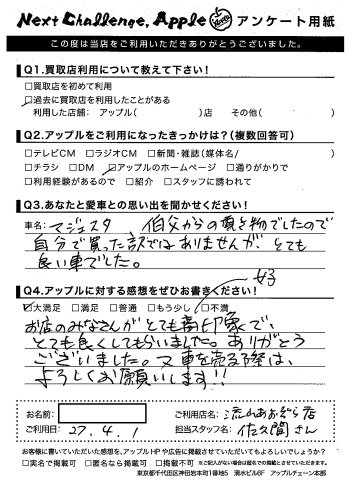 Next Challenge, Apple アンケート用紙
この度は当店をご利用いただきありがとうございました。
Q1.買取店利用について教えて下さい!
□買取店を初めて利用
☑過去に買取店を利用したことがある
利用した店舗: アップル( )店 その他( )
Q2.アップルをご利用になったきっかけは?(複数回答可)
□テレビCM □ラジオCM □新聞・雑誌(媒体名/ )
□チラシ □DM ☑アップルのホームページ □通りがかりで
□利用経験があるので □紹介 □スタッフに誘われて
Q3.あなたと愛車との思い出を聞かせください!
車名: マジェスタ 伯父からの頂き物でしたので
自分で買った訳ではありませんが、とても
良い車でした。
Q4.アップルに対する感想をぜひお書きください!
☑大満足 □満足 □普通 □もう少し □不満
好
お店のみなさんがとても高印象で、
とても良くしてもらいました。ありがとう
ございました。又車を売る際は、
よろしくお願いします!!
お名前: ご利用店名: 流山おおぞら店
ご利用日: 27.4.1 担当スタッフ名: 佐久間さん
お客様に書いていただいた感想を、アップルHPや広告に掲載させていただいてもよろしいでしょうか?
□実名で掲載可 □匿名なら掲載可 □掲載不可 ※ご記入がない場合は匿名での掲載とさせていただきます。
東京都千代田区神田岩本町1番地5 清水ビル6F アップルチェーン本部